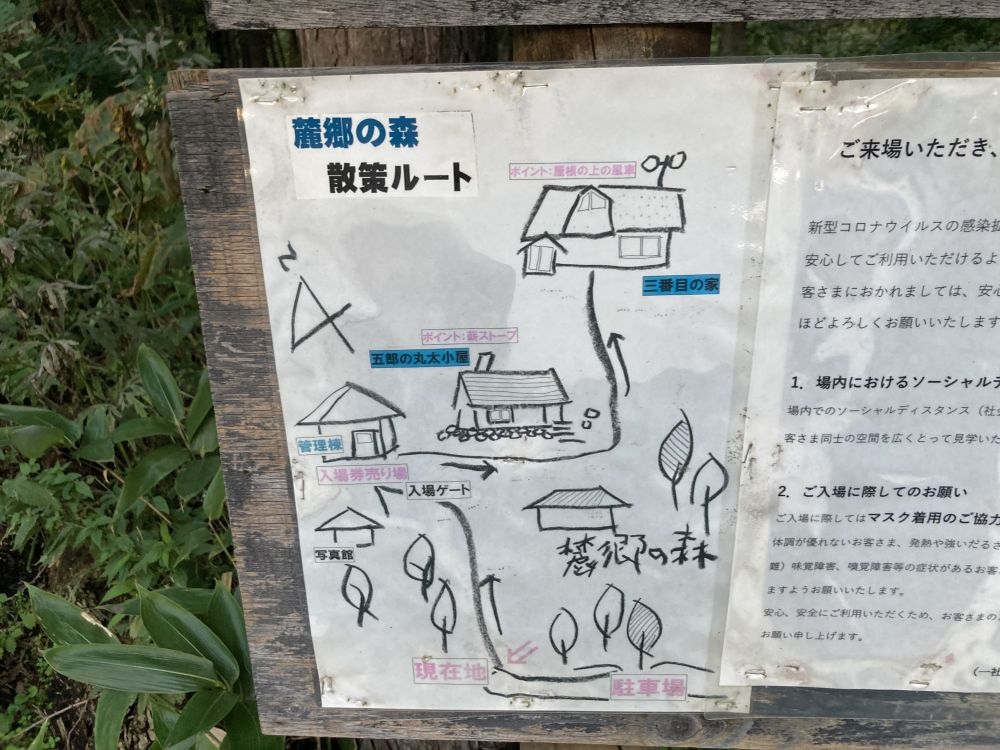 麓郷の森
散策ルート
ポイント：屋根の上の風車
三番目の家
ポイント：薪ストーブ
五郎の丸太小屋
管理棟
入場券売り場
入場ゲート
写真館
麓郷の森
現在地
駐車場
ご来場いただき、
新型コロナウイルスの感染拡
安心してご利用いただけるよ
客さまにおかれましては、安心
ほどよろしくお願いいたします
1．場内におけるソーシャルデ
場内でのソーシャルディスタンス（社会
客さま同士の空間を広くとって見学いた
2．ご入場に際してのお願い
ご入場に際してはマスク着用のご協力
体調が優れないお客さま、発熱や強いだるさ
難）味覚障害、嗅覚障害等の症状があるお客
ますようお願いいたします。
安心、安全にご利用いただくため、お客さまの
お願い申し上げます。
（一社